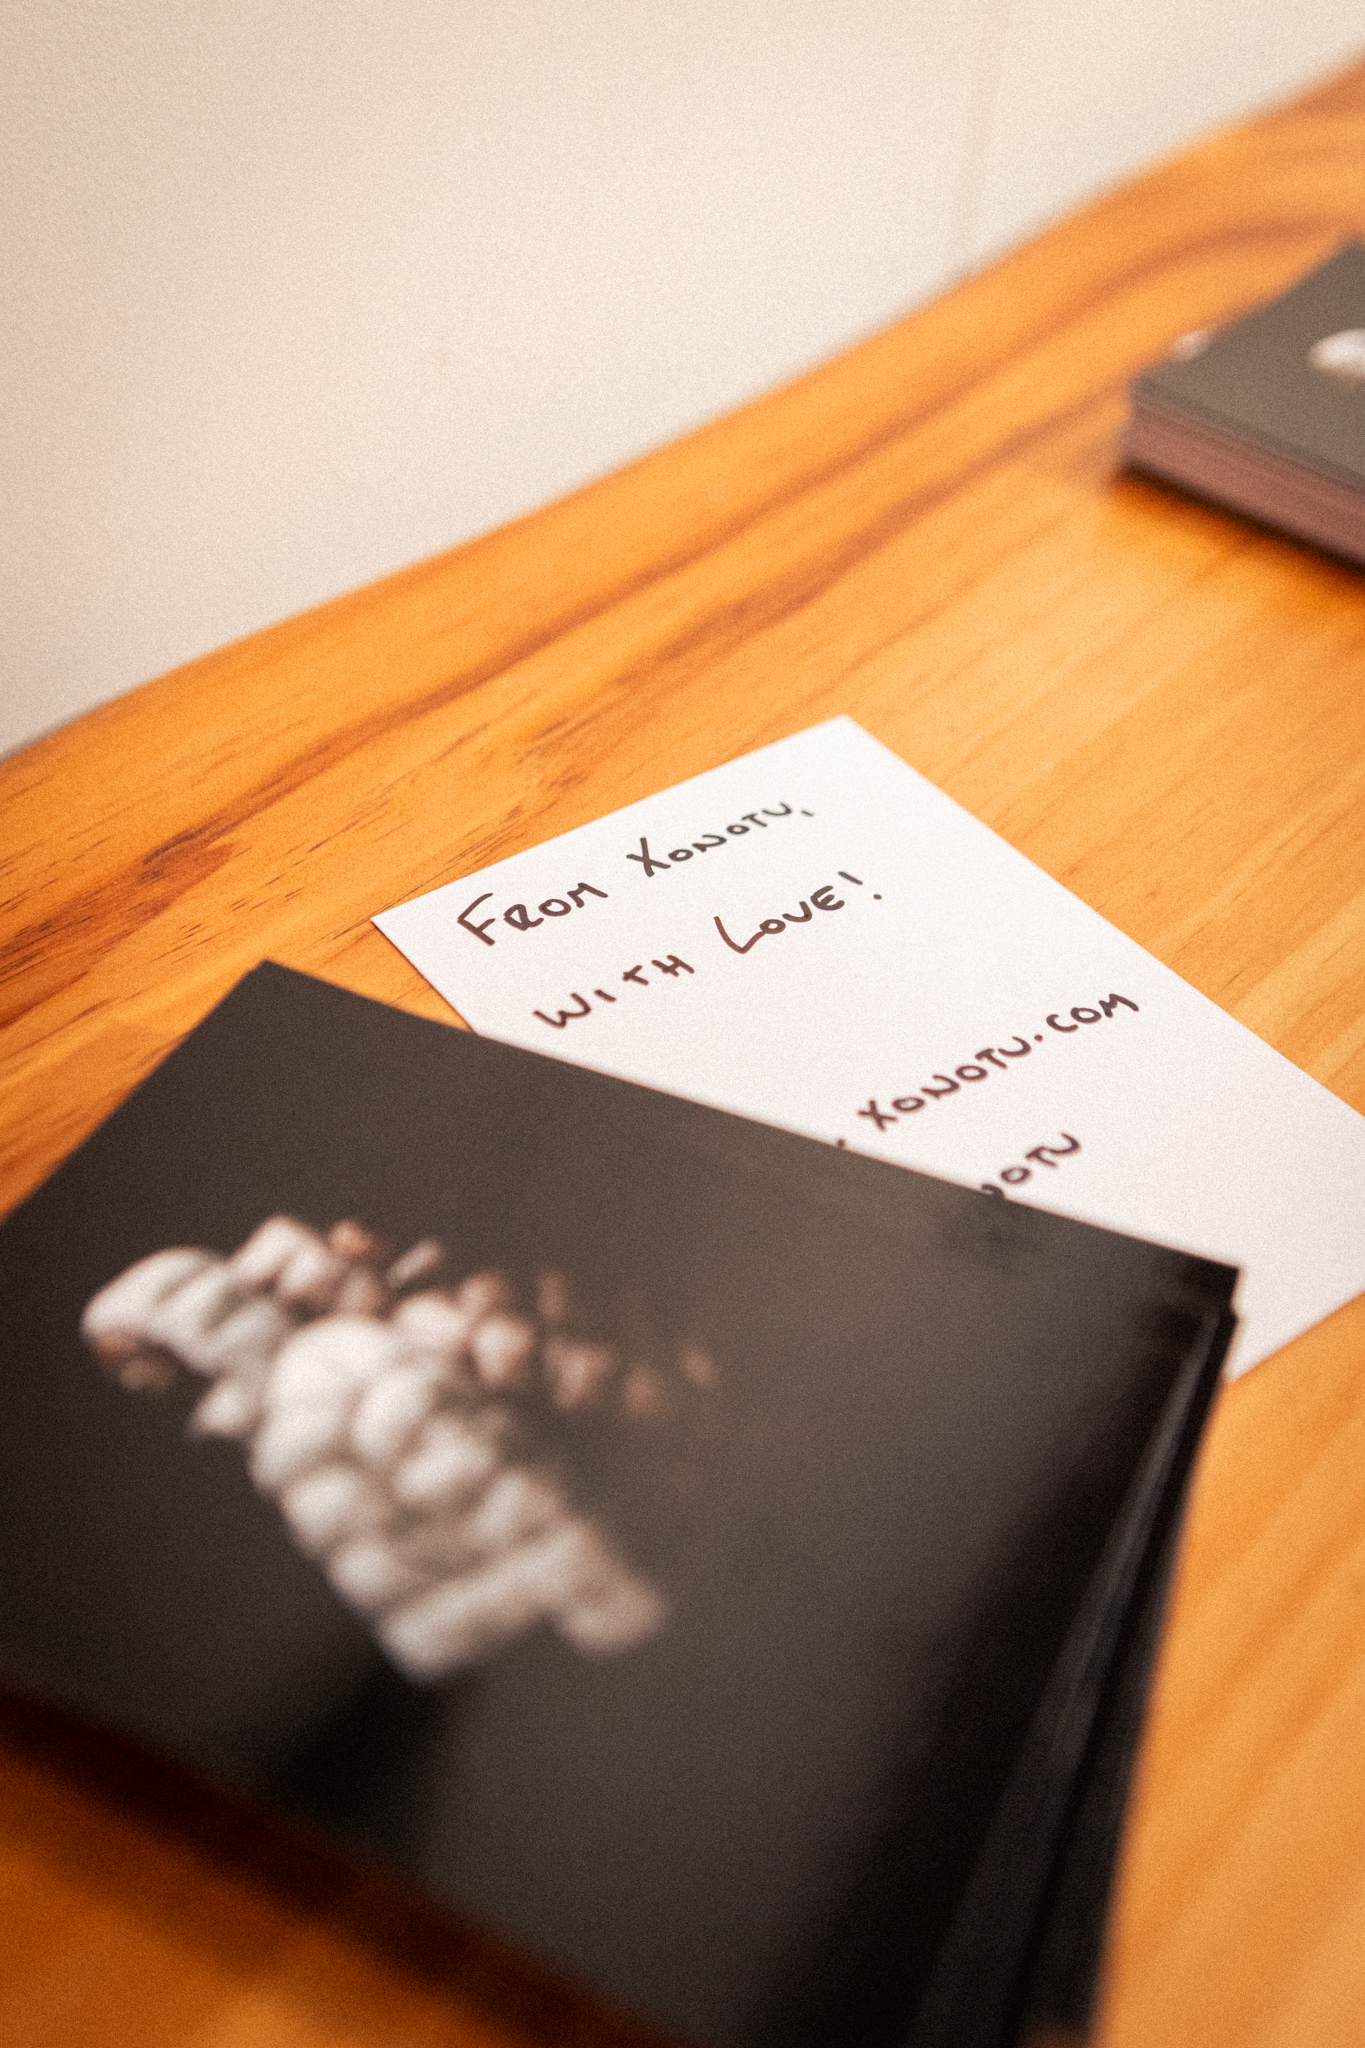 From Xonotu,
with Love!
xonotu.com
notu